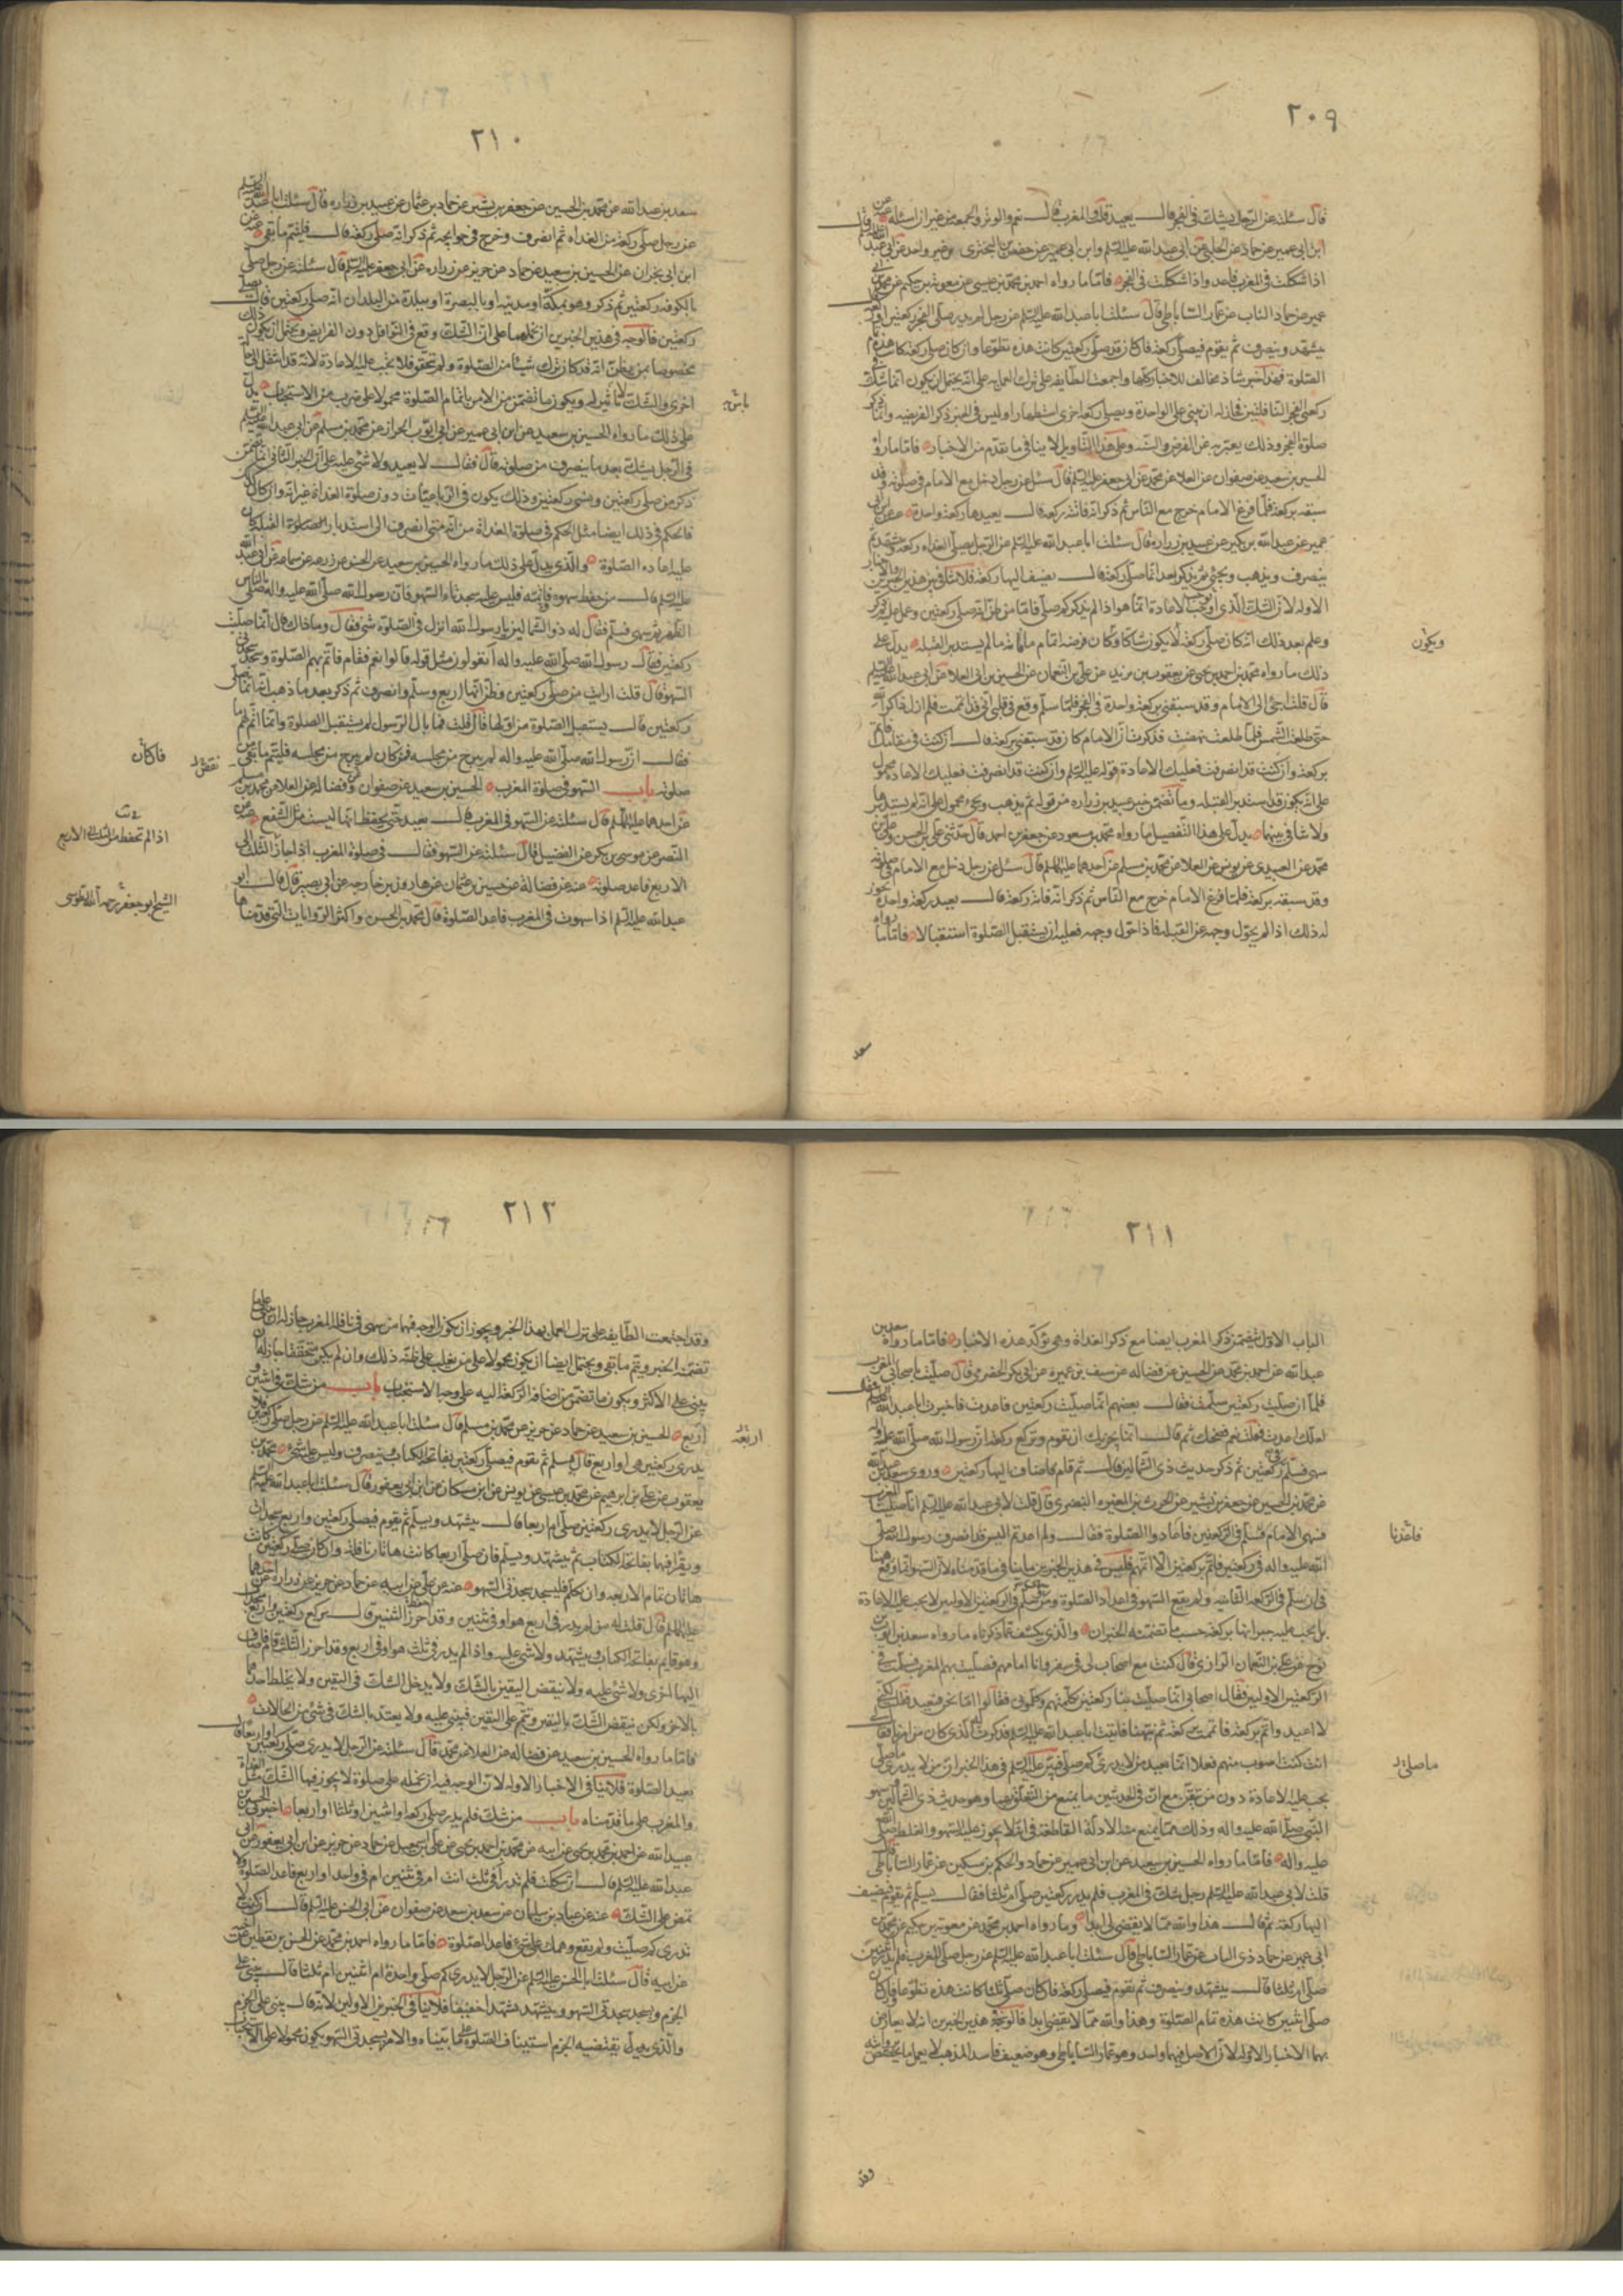 ٢٠٩
قال سئلته عن الرجل يشك في الفجر قال يعيد قلت والمغرب قال نعم والوتر والجمعة من غير ان اسئله
ابن ابي عمير عن حماد عن الحلبي عن ابي عبد الله عليه السلم وابن ابي عمير عن حفص بن البختري وغير واحد عن ابي عبد
اذا شككت في المغرب فاعد واذا شككت في الفجر فاما ما رواه احمد بن محمد بن عيسى عن معوية بن حكيم عن محمد بن ابي
عمير عن حماد الناب عن عمار الساباطي قال سئلت ابا عبد الله عليه السلم عن رجل لم يدر صلى الفجر ركعتين او ركعة
يتشهد وينصرف ثم يقوم فيصلي ركعة فان كان قد صلى ركعتين كانت هذه تطوعا وان كان صلى ركعة كانت هذه تمام
الصلوة فهذا خبر شاذ مخالف للاخبار كلها واجمعت الطايفة على ترك العمل به على انه يحتمل ان يكون انما شك في
ركعتي الفجر النافلتين فجاز له ان يبني على الواحدة ويصلي ركعة اخرى استظهارا وليس في الخبر ذكر الفريضة وانما ذكر
صلوة الفجر وذلك يعبر به عن الفرض والسنة وعلى هذا التاويل لا ينافي ما تقدم من الاخبار فاما ما رواه
الحسين بن سعيد عن صفوان عن العلا عن محمد عن ابي جعفر عليه السلم قال سئل عن رجل دخل مع الامام في صلوته وقد
سبقه بركعة فلما فرغ الامام خرج مع الناس ثم ذكر انه فاتته ركعة قال يعيدها ركعة واحدة عنه عن ابن ابي
عمير عن عبد الله بن بكير عن عبيد بن زرارة قال سئلت ابا عبد الله عليه السلم عن الرجل يصلي الغداة ركعة ويتشهد ثم
ينصرف ويذهب ويجئ ثم يذكر بعد انما صلى ركعة قال يضيف اليها ركعة فلا تنافي بين هذين الخبرين والاخبار
الاوله لان الشك الذي اوجب الاعادة انما هو اذا لم يذكر كم صلى فاما من ظن انه صلى ركعتين وعمل عليه ثم ذكر
وعلم بعد ذلك انه كان صلى ركعة لا يكون شاكا وكان فرضه اتمام ما فاته ما لم يستدبر القبلة يدل على
ويكون
ذلك ما رواه محمد بن احمد بن يحيى عن يعقوب بن يزيد عن علي بن النعمان عن الحسين بن ابي العلا عن ابي عبد الله عليه السلم
قال قلت اجئ الى الامام وقد سبقني بركعة واحدة في الفجر فلما سلم وقع في قلبي اني قد اتممت فلم ازل ذاكرا لله
حتى طلعت الشمس فلما طلعت نهضت فذكرت ان الامام كان قد سبقني بركعة قال ان كنت في مقامك فاتم
بركعة وان كنت قد انصرفت فعليك الاعادة قوله عليه السلم وان كنت قد انصرفت فعليك الاعادة محمول
على انه يكون قد استدبر القبلة وما تضمن خبر عبيد بن زرارة من قوله ثم يذهب ويجئ محمول على انه لم يستدبرها
ولا تنافي بينهما يدل على هذا التفصيل ما رواه محمد بن مسعود عن جعفر بن احمد قال حدثني علي بن الحسن وعلي بن
محمد عن العبيدي عن يونس عن العلا عن محمد بن مسلم عن احدهما عليهما السلم قال سئل عن رجل دخل مع الامام في صلوته
وقد سبقه بركعة فلما فرغ الامام خرج مع الناس ثم ذكر انه فاتته ركعة قال يعيد ركعة واحدة يجوز
له ذلك اذا لم يحول وجهه عن القبلة فاذا حول وجهه فعليه ان يستقبل الصلوة استقبالا فاما ما رواه
سعد
٢١٠
سعد بن عبد الله عن محمد بن الحسين عن جعفر بن بشير عن حماد بن عثمان عن عبيد بن زرارة قال سئلت ابا عبد الله عليه السلم
عن رجل صلى ركعة من الغداة ثم انصرف وخرج في حوايجه ثم ذكر انه صلى ركعة قال فليتم ما بقي عنه عن
ابن ابي نجران عن الحسين بن سعيد عن حماد عن حريز عن زرارة عن ابي جعفر عليه السلم قال سئلته عن رجل صلى
بالكوفة ركعتين ثم ذكر وهو بمكة او مدينة او بالبصرة او ببلدة من البلدان انه صلى ركعتين قال يصلي
ركعتين فالوجه في هذين الخبرين ان نحملهما على ان الشك وقع في النوافل دون الفرايض ويحتمل ان يكون ذلك
مخصوصا بمن يظن انه قد كان ترك شيئا من الصلوة ولم يتحقق فلا يجب عليه الاعادة لانه قد انتقل الى حالة
اخرى والشك لا تاثير له ويكون ما تضمن من الامر باتمام الصلوة محمولا على ضرب من الاستحباب يدل
على ذلك ما رواه الحسين بن سعيد عن ابن ابي عمير عن ابي ايوب الخراز عن محمد بن مسلم عن ابي عبد الله عليه السلم
في الرجل يشك بعد ما ينصرف من صلوته قال فقال لا يعيد ولا شئ عليه على ان الخبر الثاني انما تضمن
ذكر من صلى ركعتين ونسي ركعتين وذلك يكون في الرباعيات دون صلوة الغداة غير انه وان كان كذلك
فالحكم في ذلك ايضا مثل الحكم في صلوة الغداة من انه متى انصرف الى استدبار القبلة كان
عليه اعادة الصلوة والذي يدل على ذلك ما رواه الحسين بن سعيد عن الحسن عن زرعة عن سماعة عن ابي عبد الله
عليه السلم قال من حفظ سهوه فاتمه فليس عليه سجدتا السهو فان رسول الله صلى الله عليه واله صلى بالناس
الظهر ثم سهى فسلم فقال له ذو الشمالين يا رسول الله انزل في الصلوة شئ فقال وما ذاك قال انما صليت
ركعتين فقال رسول الله صلى الله عليه واله أتقولون مثل قوله قالوا نعم فقام فاتم بهم الصلوة وسجد سجدتي
السهو قال قلت ارايت من صلى ركعتين وظن انها اربع وسلم وانصرف ثم ذكر بعد ما ذهب انه انما صلى
ركعتين قال يستقبل الصلوة من اولها قال قلت فما بال الرسول لم يستقبل الصلوة وانما اتم لهم ما
فقال ان رسول الله صلى الله عليه واله لم يبرح من مجلسه فان كان لم يبرح من مجلسه فليتم ما نقص من
فاكان
صلوته باب السهو في صلوة المغرب الحسين بن سعيد عن صفوان وفضالة عن العلا عن محمد بن مسلم
عن احدهما عليهما السلم قال سئلته عن السهو في المغرب قال يعيد حتى يحفظ انها ليست مثل الشفع عنه عن
النضر عن موسى بن بكر عن الفضيل قال سئلته عن السهو فقال في صلوة المغرب اذا جاز الثلث الى
الاربع فاعد صلوتك عنه عن فضالة عن حسين بن عثمان عن هارون بن خارجة عن ابي بصير قال قال ابو
عبد الله عليه السلم اذا سهوت في المغرب فاعد الصلوة قال محمد بن الحسن واكثر الروايات التي قدمناها
اذا لم تحفظ ما بين الثلث الى الاربع
الشيخ ابو جعفر رحمه الله الطوسي
٢١١
الباب الاول يتضمن ذكر المغرب ايضا مع ذكر الغداة وهي تؤكد هذه الاخبار فاما ما رواه سعد بن
عبد الله عن احمد بن محمد عن الحسين عن فضالة عن سيف بن عميرة عن ابي بكر الحضرمي قال صليت باصحابي المغرب
فلما ان صليت ركعتين سلمت فقال بعضهم انما صليت ركعتين فاعدت فاخبرت ابا عبد الله عليه السلم فقال
لعلك اعدت فقلت نعم فضحك ثم قال انما يجزيك ان تقوم وتركع ركعة ان رسول الله صلى الله عليه واله
سهى فسلم في ركعتين ثم ذكر حديث ذي الشمالين قال ثم قام فاضاف اليها ركعتين وروى سعد بن عبد الله
عن محمد بن الحسين عن جعفر بن بشير عن الحرث بن المغيرة النصري قال قلت لابي عبد الله عليه السلم انا صلينا المغرب
فسهى الامام فسلم في الركعتين فاعدنا الصلوة فقال ولم اعدتم اليس قد انصرف رسول الله صلى
فاعدنا
الله عليه واله في ركعتين فاتم بركعتين الا اتممتم فليس في هذين الخبرين ما ينافي ما قدمناه لان السهو انما وقع ههنا
في ان سلم في الركعة الثانية ولم يقع السهو في اعداد الصلوة ومن سلم في الركعتين الاوليين لا يجب عليه الاعادة
بل يجب عليه جبرانها بركعة حسب ما تضمنه الخبران والذي يكشف عما ذكرناه ما رواه سعد بن ايوب بن
نوح عن علي بن النعمان الرازي قال كنت مع اصحاب لي في سفر وانا امامهم فصليت بهم المغرب فسلمت في
الركعتين الاوليين فقال اصحابي انما صليت بنا ركعتين فكلمتهم وكلموني فقالوا اما نحن فنعيد فقلت لكني
لا اعيد واتم بركعة فاتممت بركعة ثم سرنا فاتيت ابا عبد الله عليه السلم فذكرت له الذي كان من امرنا فقال
انت كنت اصوب منهم فعلا انما يعيد من لا يدري كم صلى فبين عليه السلم في هذا الخبر ان من لا يدري ما صلى
ما صلى
يجب عليه الاعادة دون من تيقن مع ان في الحديثين ما يمنع من التعلق بهما وهو حديث ذي الشمالين وسهو
النبي صلى الله عليه واله وذلك مما يمنع منه الادلة القاطعة في انه لا يجوز عليه السهو والغلط صلى الله
عليه واله فاما ما رواه الحسين بن سعيد عن ابن ابي عمير عن حماد والحكم بن مسكين عن عمار الساباطي قال
قلت لابي عبد الله عليه السلم رجل شك في المغرب فلم يدر ركعتين صلى ام ثلثا فقال يسلم ثم يقوم فيضيف
اليها ركعة ثم قال هذا والله مما لا يقضي لي ابدا وما رواه احمد بن محمد عن معوية بن حكيم عن محمد بن
ابي عمير عن حماد ذي الناب عن عمار الساباطي قال سئلت ابا عبد الله عليه السلم عن رجل صلى المغرب فلم يدر اثنتين
صلى ام ثلثا قال يتشهد وينصرف ثم يقوم فيصلي ركعة فان كان صلى ثلثا كانت هذه تطوعا وان كان
صلى اثنتين كانت هذه تمام الصلوة وهذا والله مما لا يقضي ابدا فالوجه في هذين الخبرين انه لا يعارض
بهما الاخبار الاوله لان الاصل فيهما واحد وهو عمار الساباطي وهو ضعيف فاسد المذهب لا يعمل بما يختص
وقد
٢١٢
وقد اجتمعت الطايفة على ترك العمل بهذا الخبر ويجوز ان يكون الوجه فيهما من سهى في نافلة المغرب جاز له ان يبني على ما
تضمنه الخبر ويتم ما بقي ويحتمل ايضا ان يكون محمولا على من يغلب على ظنه ذلك وان لم يكن متحققا جاز له ان
يبني على الاكثر ويكون ما تضمن من اضافة الركعة اليه على وجه الاستحباب باب من شك في اثنتين و
اربعة
اربع الحسين بن سعيد عن حماد عن حريز عن محمد بن مسلم قال سئلت ابا عبد الله عليه السلم عن رجل صلى ركعتين فلا
يدري ركعتين هي او اربع قال يسلم ثم يقوم فيصلي ركعتين بفاتحة الكتاب وينصرف وليس عليه شئ محمد بن
يعقوب عن علي بن ابرهيم عن محمد بن عيسى عن يونس عن ابن مسكان عن ابن ابي يعفور قال سئلت ابا عبد الله عليه السلم
عن الرجل لا يدري ركعتين صلى ام اربعا قال يتشهد ويسلم ثم يقوم فيصلي ركعتين واربع سجدات
ويقرا فيهما بفاتحة الكتاب ثم يتشهد ويسلم فان صلى اربعا كانت هاتان نافلة وان كان صلى ركعتين كانت
هاتان تمام الاربعة وان تكلم فليسجد سجدتي السهو عنه عن علي عن ابيه عن حماد عن حريز عن زرارة عن احدهما
عليهما السلم قال قلت له من لم يدر في اربع هو او في ثنتين وقد احرز الثنتين قال يركع ركعتين واربع سجدات
وهو قايم بفاتحة الكتاب ويتشهد ولا شئ عليه واذا لم يدر في ثلث هو او في اربع وقد احرز الثلث قام فاضاف
اليها اخرى ولا شئ عليه ولا ينقض اليقين بالشك ولا يدخل الشك في اليقين ولا يخلط احدهما
بالاخر ولكن ينقض الشك باليقين ويتم على اليقين فيبني عليه ولا يعتد بالشك في شئ من الحالات
فاما ما رواه الحسين بن سعيد عن فضالة عن العلا عن محمد قال سئلته عن الرجل لا يدري صلى ركعتين او اربعا قال
يعيد الصلوة فلا ينافي الاخبار الاوله لان الوجه فيه ان نحمله على صلوة لا يجوز فيها الشك مثل الغداة
والمغرب على ما قدمناه باب من شك فلم يدر صلى ركعة او اثنتين او ثلثا او اربعا اخبرني الحسين بن
عبيد الله عن احمد بن محمد بن يحيى عن ابيه عن محمد بن احمد بن يحيى عن علي بن اسمعيل عن حماد عن حريز عن ابن ابي يعفور عن ابي
عبد الله عليه السلم قال ان شككت فلم تدر أفي ثلث انت ام في ثنتين ام في واحدة او اربع فاعد الصلوة ولا
تمض على الشك عنه عن عباد بن سليمان عن سعد بن سعد عن صفوان عن ابي الحسن عليه السلم قال ان كنت لا
تدري كم صليت ولم يقع وهمك على شئ فاعد الصلوة فاما ما رواه احمد بن محمد عن الحسن بن علي بن يقطين عن اخيه
عن ابيه قال سئلت ابا الحسن عليه السلم عن الرجل لا يدري كم صلى واحدة ام اثنتين ام ثلثا قال يبني على
الجزم ويسجد سجدتي السهو ويتشهد تشهدا خفيفا فلا ينافي الخبرين الاولين لانه قال يبني على الجزم
والذي يقتضيه الجزم استيناف الصلوة على ما بيناه والامر بسجدتي السهو يكون محمولا على الاستحباب